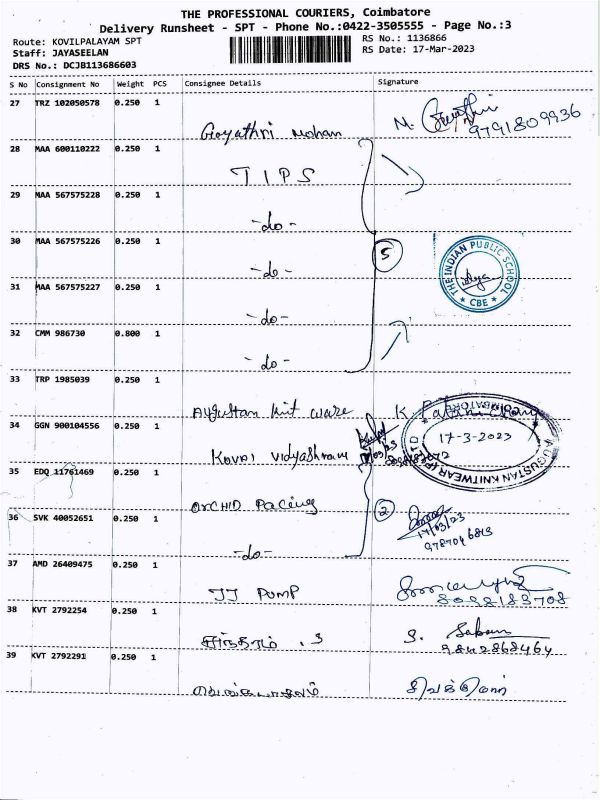 THE PROFESSIONAL COURIERS, Coimbatore
Delivery Runsheet - SPT - Phone No.:0422-3505555 - Page No.:3
Route: KOVILPALAYAM SPT
RS No.: 1136866
Staff: JAYASEELAN
RS Date: 17-Mar-2023
DRS No.: DCJB113686603
S No Consignment No Weight PCS Consignee Details Signature
27 TRZ 102050578 0.250 1
Gayathri Mohan M. 9791809936
28 MAA 600110222 0.250 1
TIPS
29 MAA 567575228 0.250 1
-do-
30 MAA 567575226 0.250 1
5
THE INDIAN PUBLIC SCHOOL
* CBE *
-do-
31 MAA 567575227 0.250 1
-do-
32 CMM 986730 0.800 1
-do-
33 TRP 1985039 0.250 1
Augustan knit ware K.
34 GGN 900104556 0.250 1
17-3-2023
AUGUSTAN KNITWEAR (P) LTD
COIMBATORE
Kovai vidyashram
35 EDQ 11761469 0.250 1
ORCHID Pacing
36 SVK 40052651 0.250 1
2
17/03/23
9787046813
-do-
37 AMD 26409475 0.250 1
JJ PUMP
8098183708
38 KVT 2792254 0.250 1
. S S.
9842868464
39 KVT 2792291 0.250 1